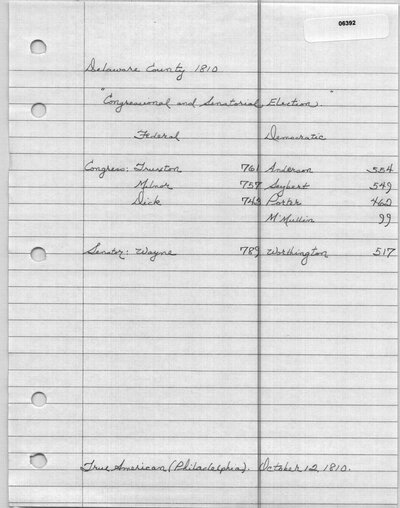 06392
Delaware County 1810
"Congressional and Senatorial Election."
Federal Democratic
Congress: Truxton 761 Anderson 554
Milnor 757 Seybert 549
Dick 743 Porter 460
McMullin 99
Senator: Wayne 789 Worthington 517
True American (Philadelphia). October 12, 1810.